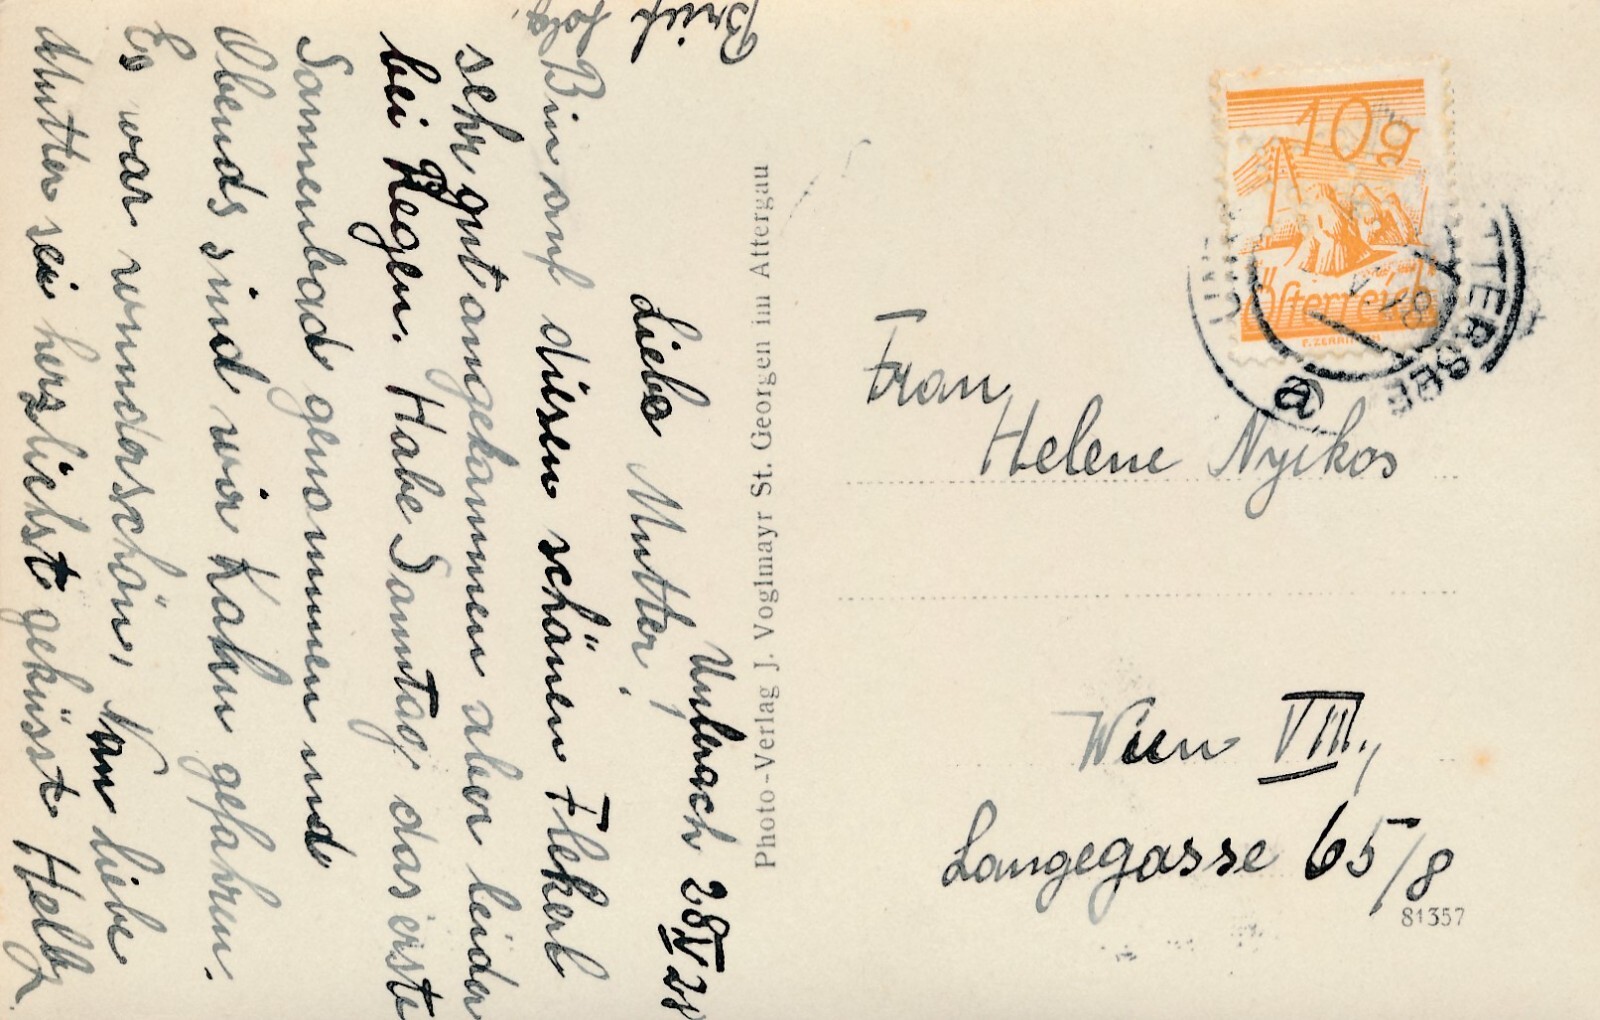 Unterach 28 IV 28
Liebe Mutter!
Bin auf diesen schönen Flekerl
sehr gut angekommen aber leider
bei Regen. Habe Samstag das erste
Sonnenbad genommen und
Abends sind wir Kahn gefahren.
Es war wunderschön, Nun liebe
Mutter sei herzlichst geküsst Helly
Brief folgt
Photo-Verlag J. Voglmayr St. Georgen im Attergau
10g
Österreich
TTERSEE
a
Frau
Helene Nyikos
Wien VIII.,
Langegasse 65/8
81357